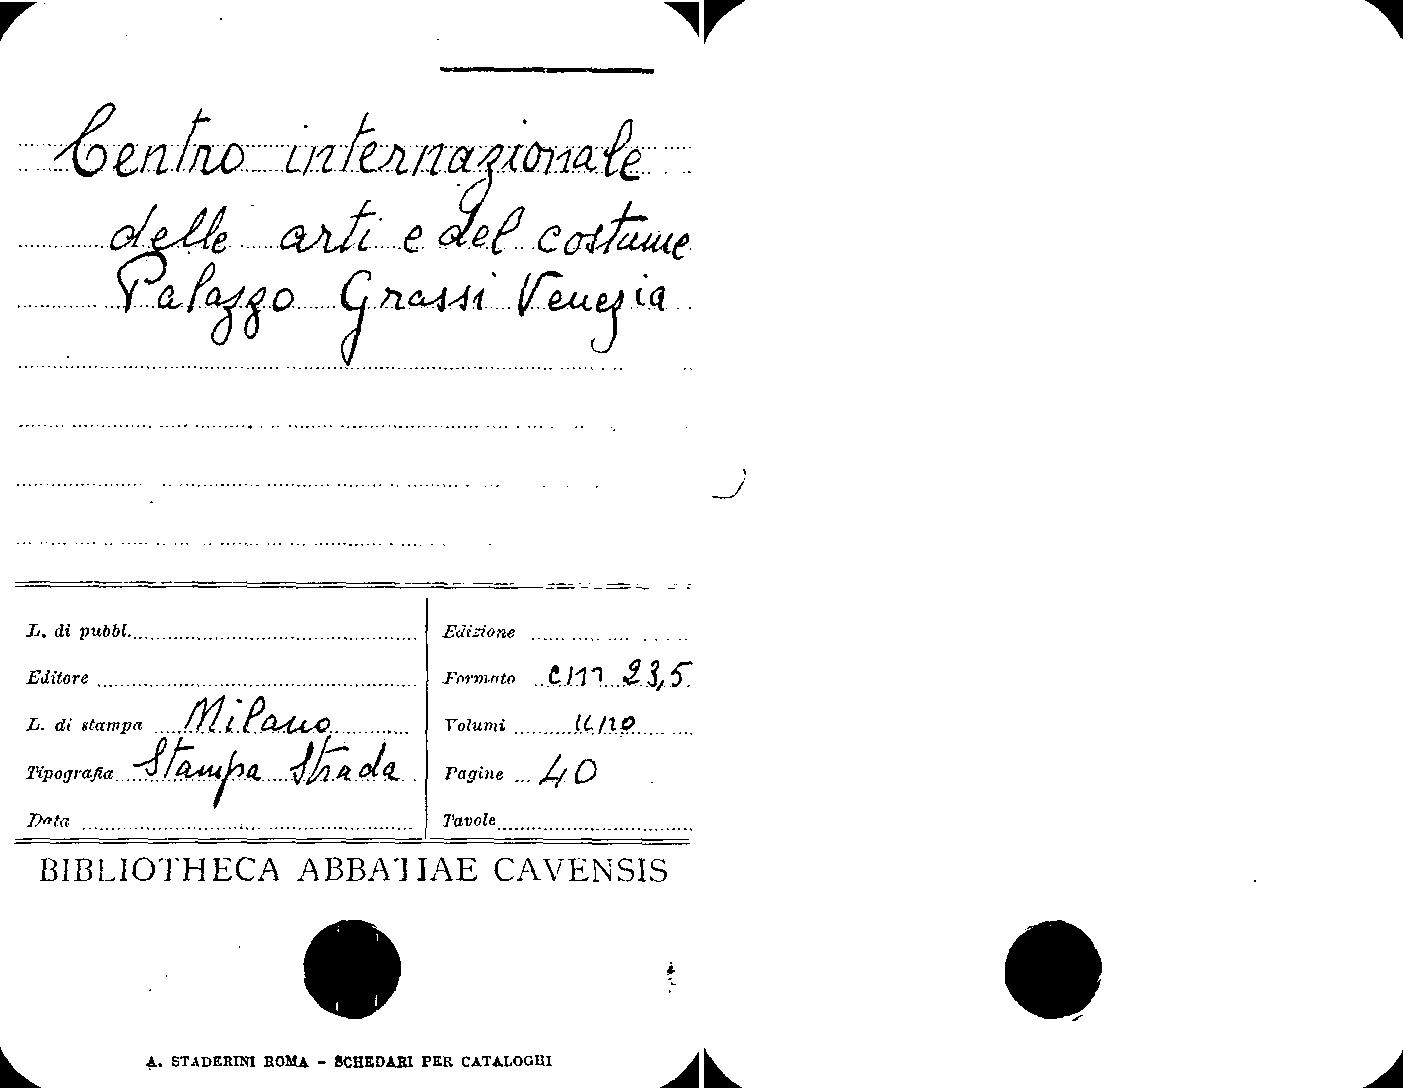 Centro internazionale
delle arti e del costume
Palazzo Grassi Venezia
L. di pubbl.
Editore
L. di stampa Milano
Tipografia Stampa Strada
Data
Edizione
Formato cm 23,5
Volumi uno
Pagine 40
Tavole
BIBLIOTHECA ABBATIAE CAVENSIS
A. STADERINI ROMA - SCHEDARI PER CATALOGHI